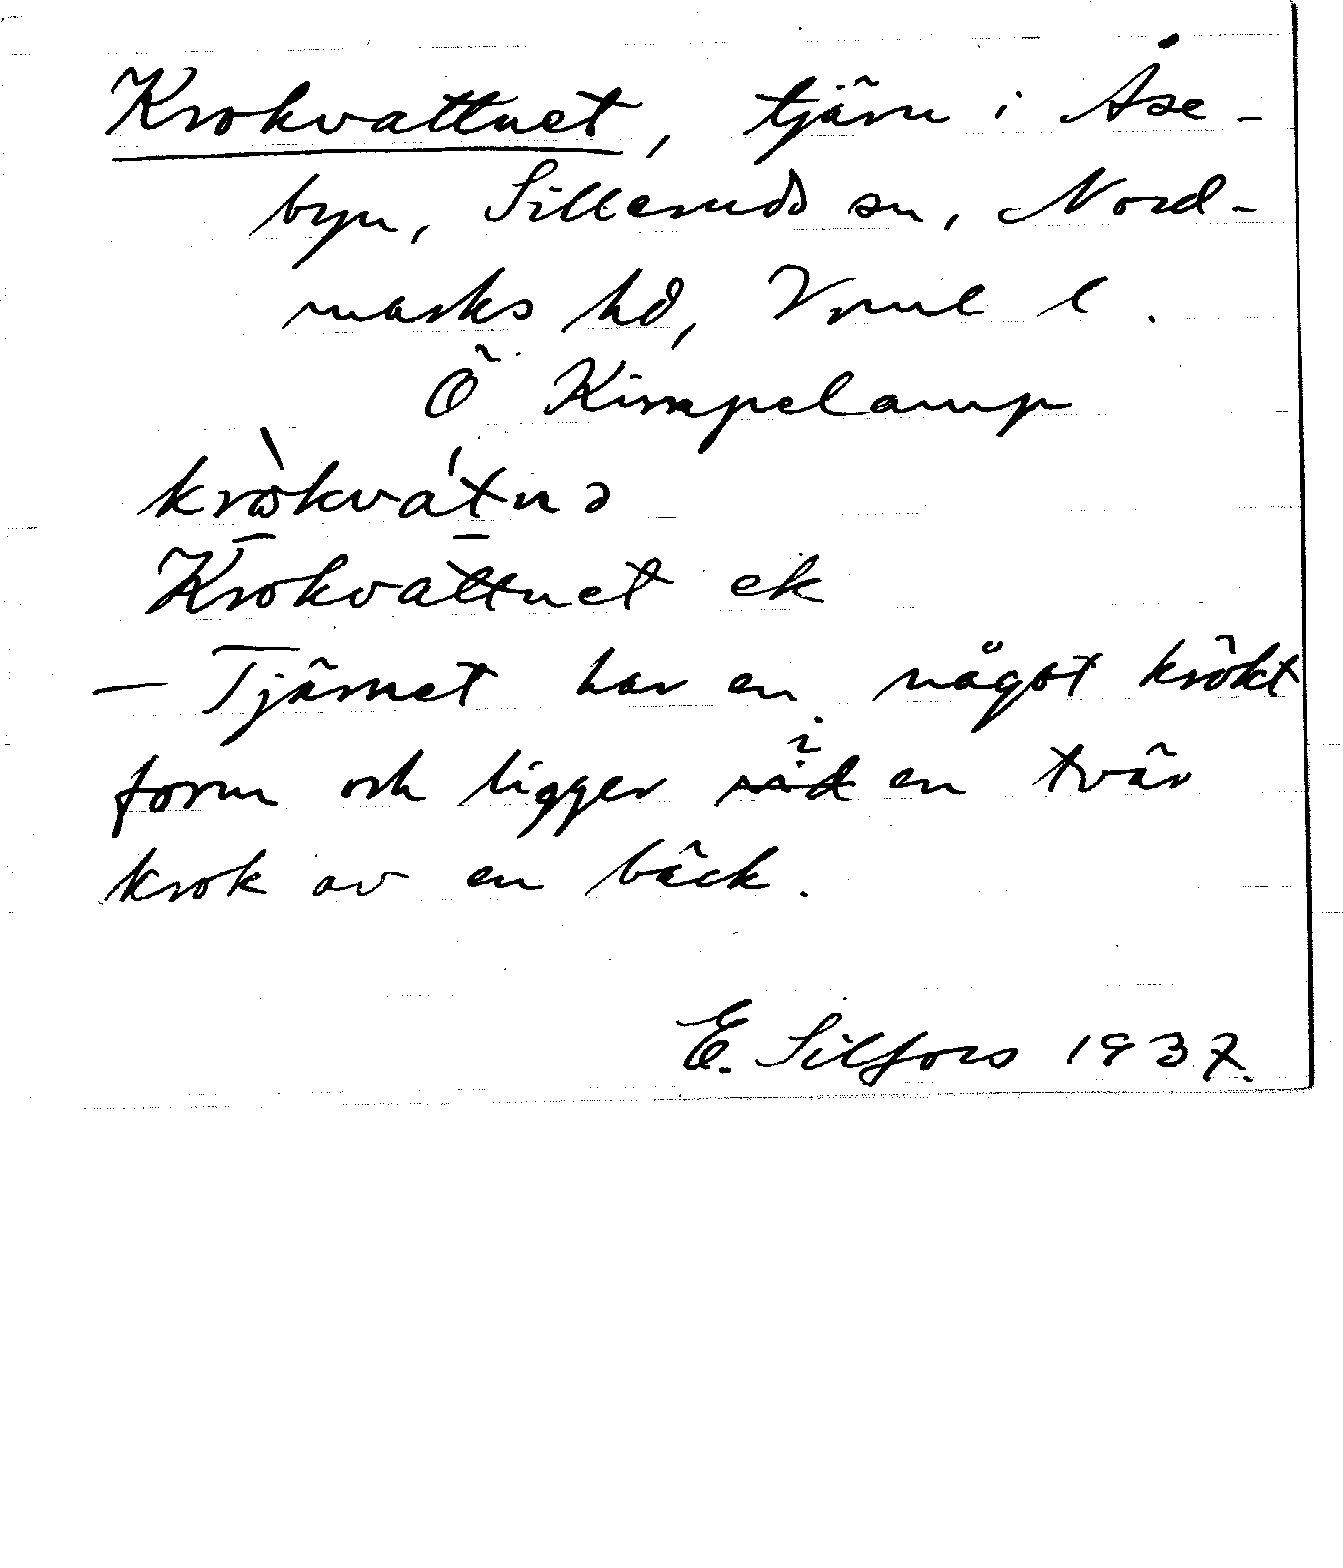 Krokvattnet, tjärn i Åse-
byn, Silleruds sn, Nord-
marks hd, Vrml l.
Ö Kimpelamp
kròkvátnə
Krokvattnet ek
— Tjärnet har en något krökt
form och ligger i en tvär
krok av en bäck.
E. Silfors 1937.